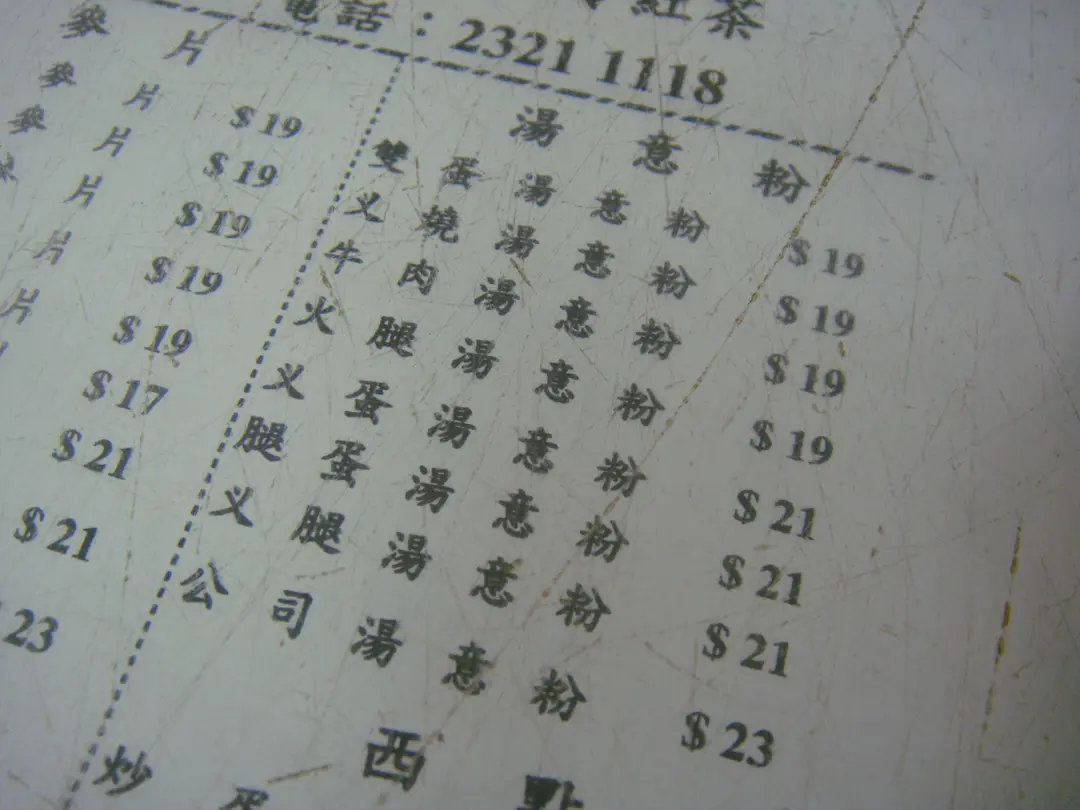 紅茶
電話：2321 1118
參片 $19
參片 $19
參片 $19
片 $19
片 $19
片 $17
$21
$21
23
湯意粉
雙蛋湯意粉 $19
义燒湯意粉 $19
牛肉湯意粉 $19
火腿湯意粉 $19
义蛋湯意粉 $21
腿蛋湯意粉 $21
义腿湯意粉 $21
公司湯意粉 $23
西點
炒蛋